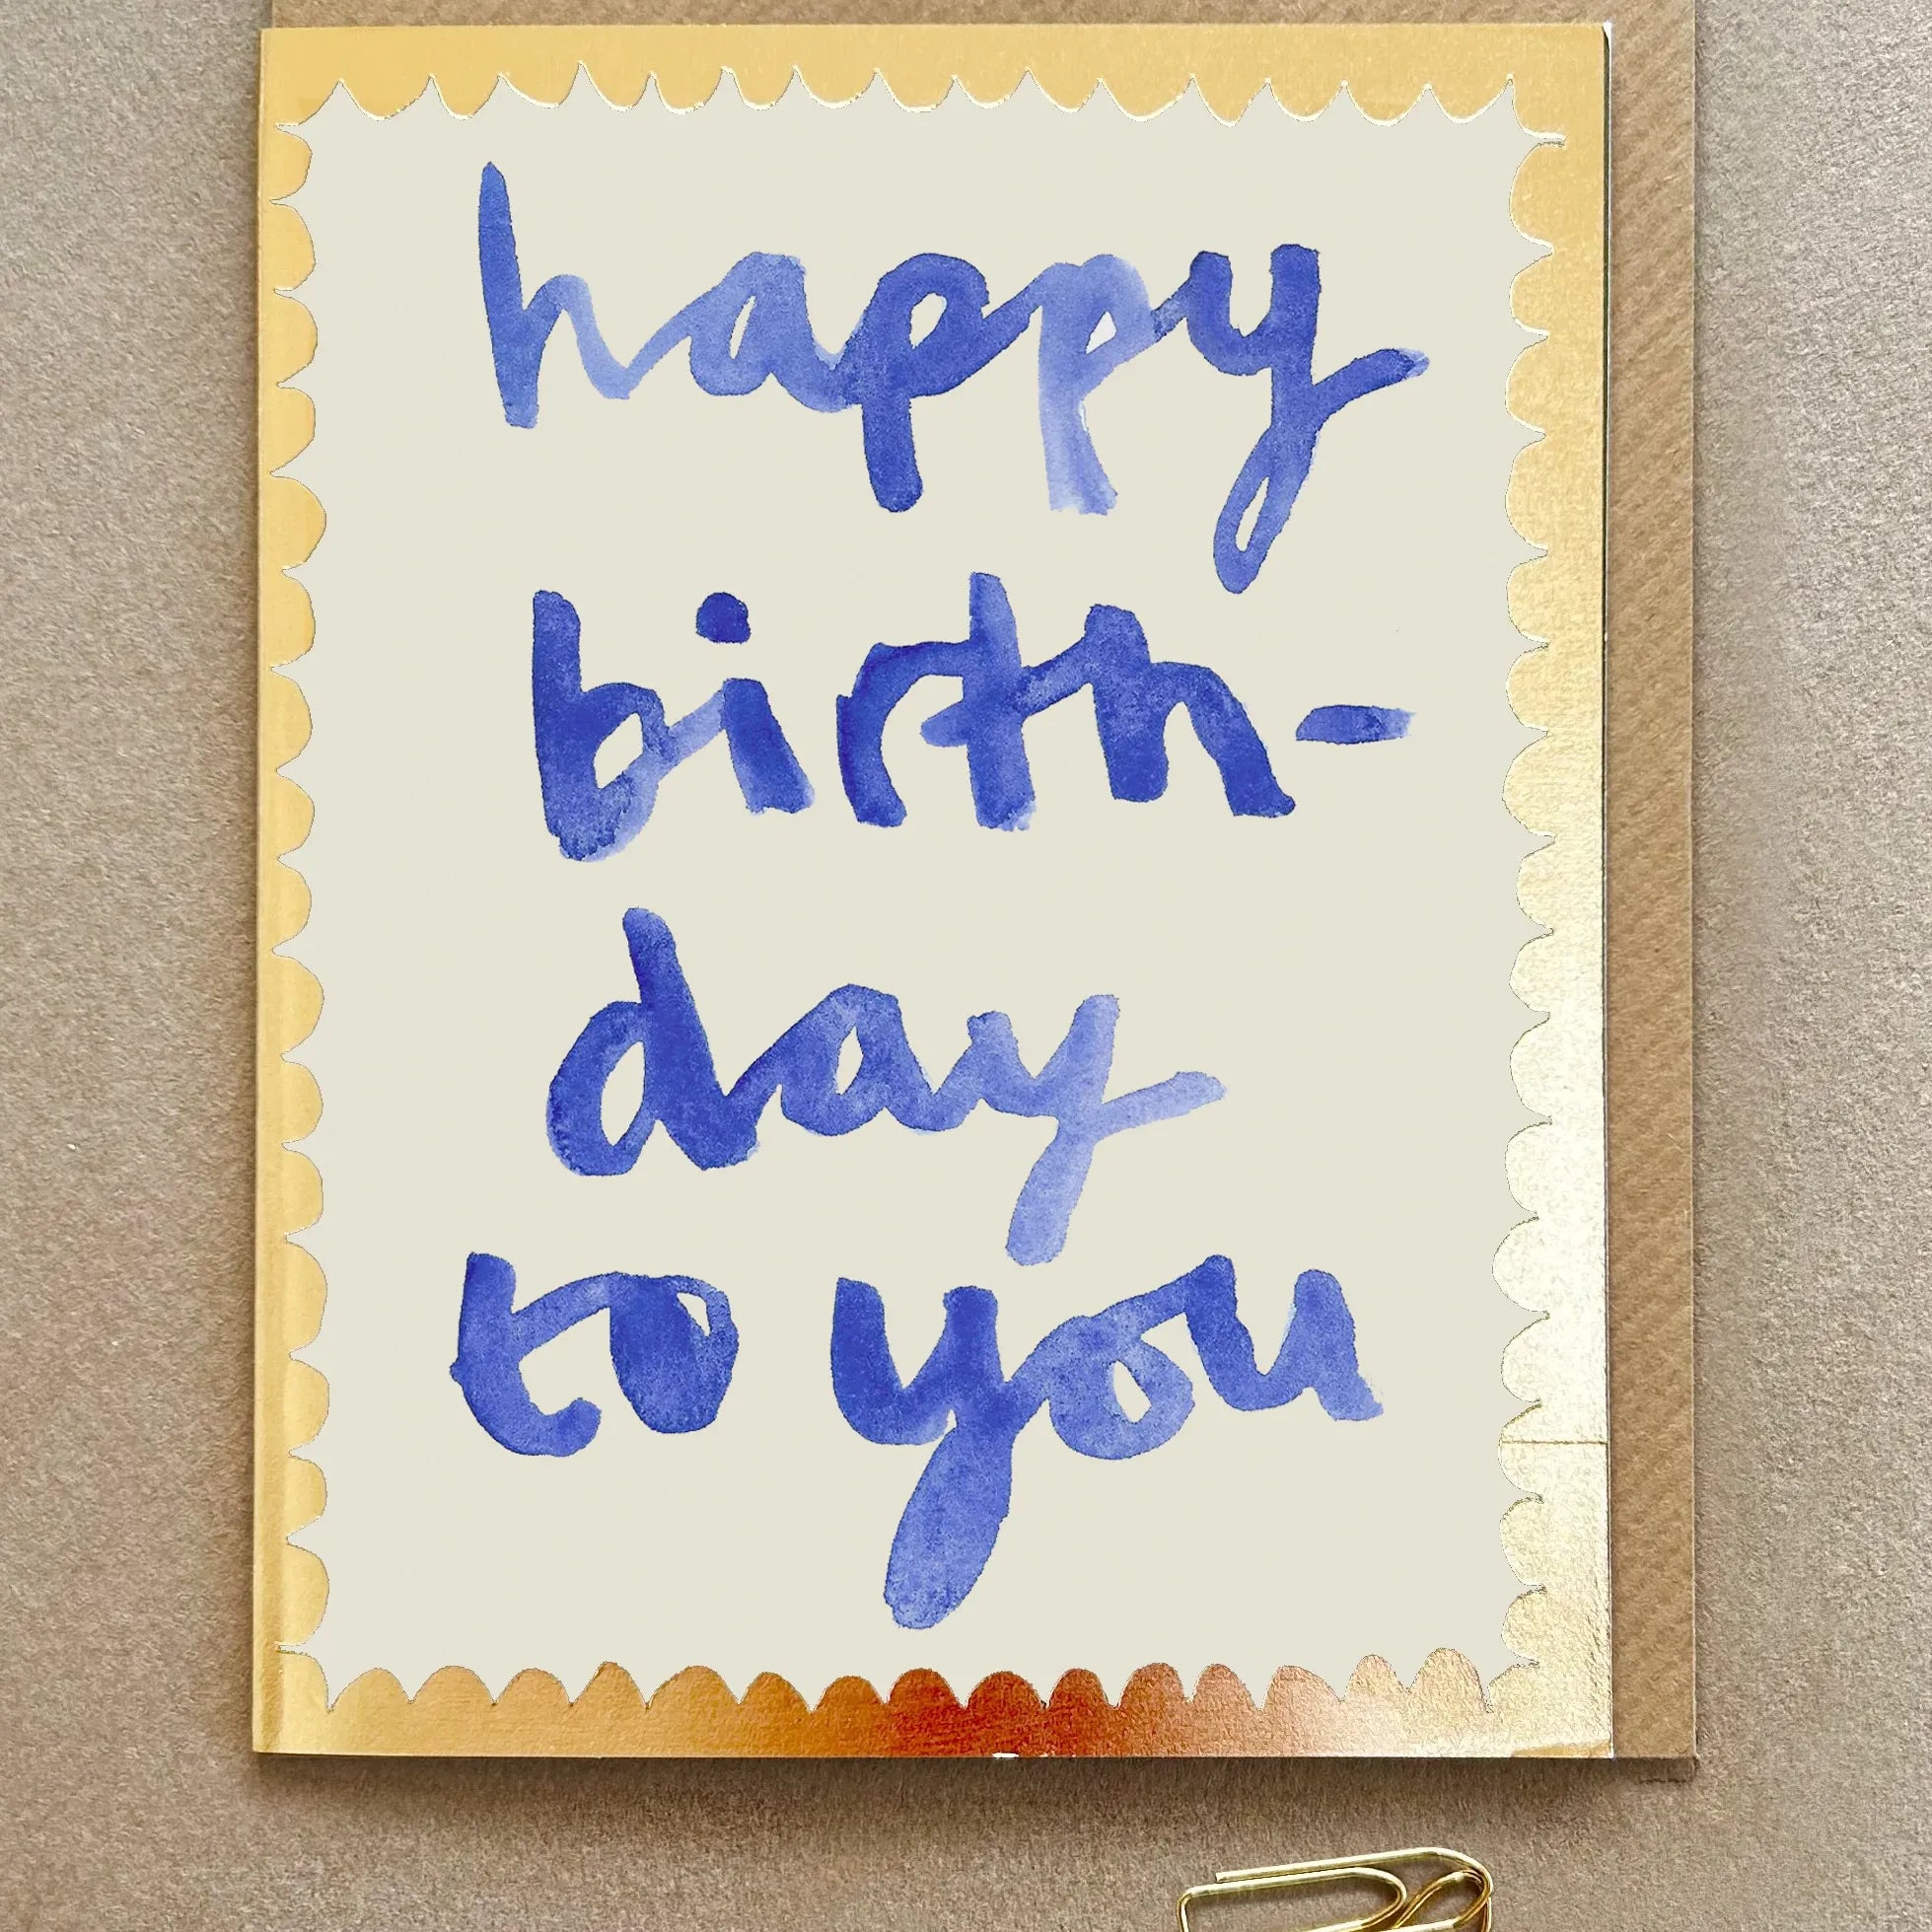 happy
birth-
day
to you